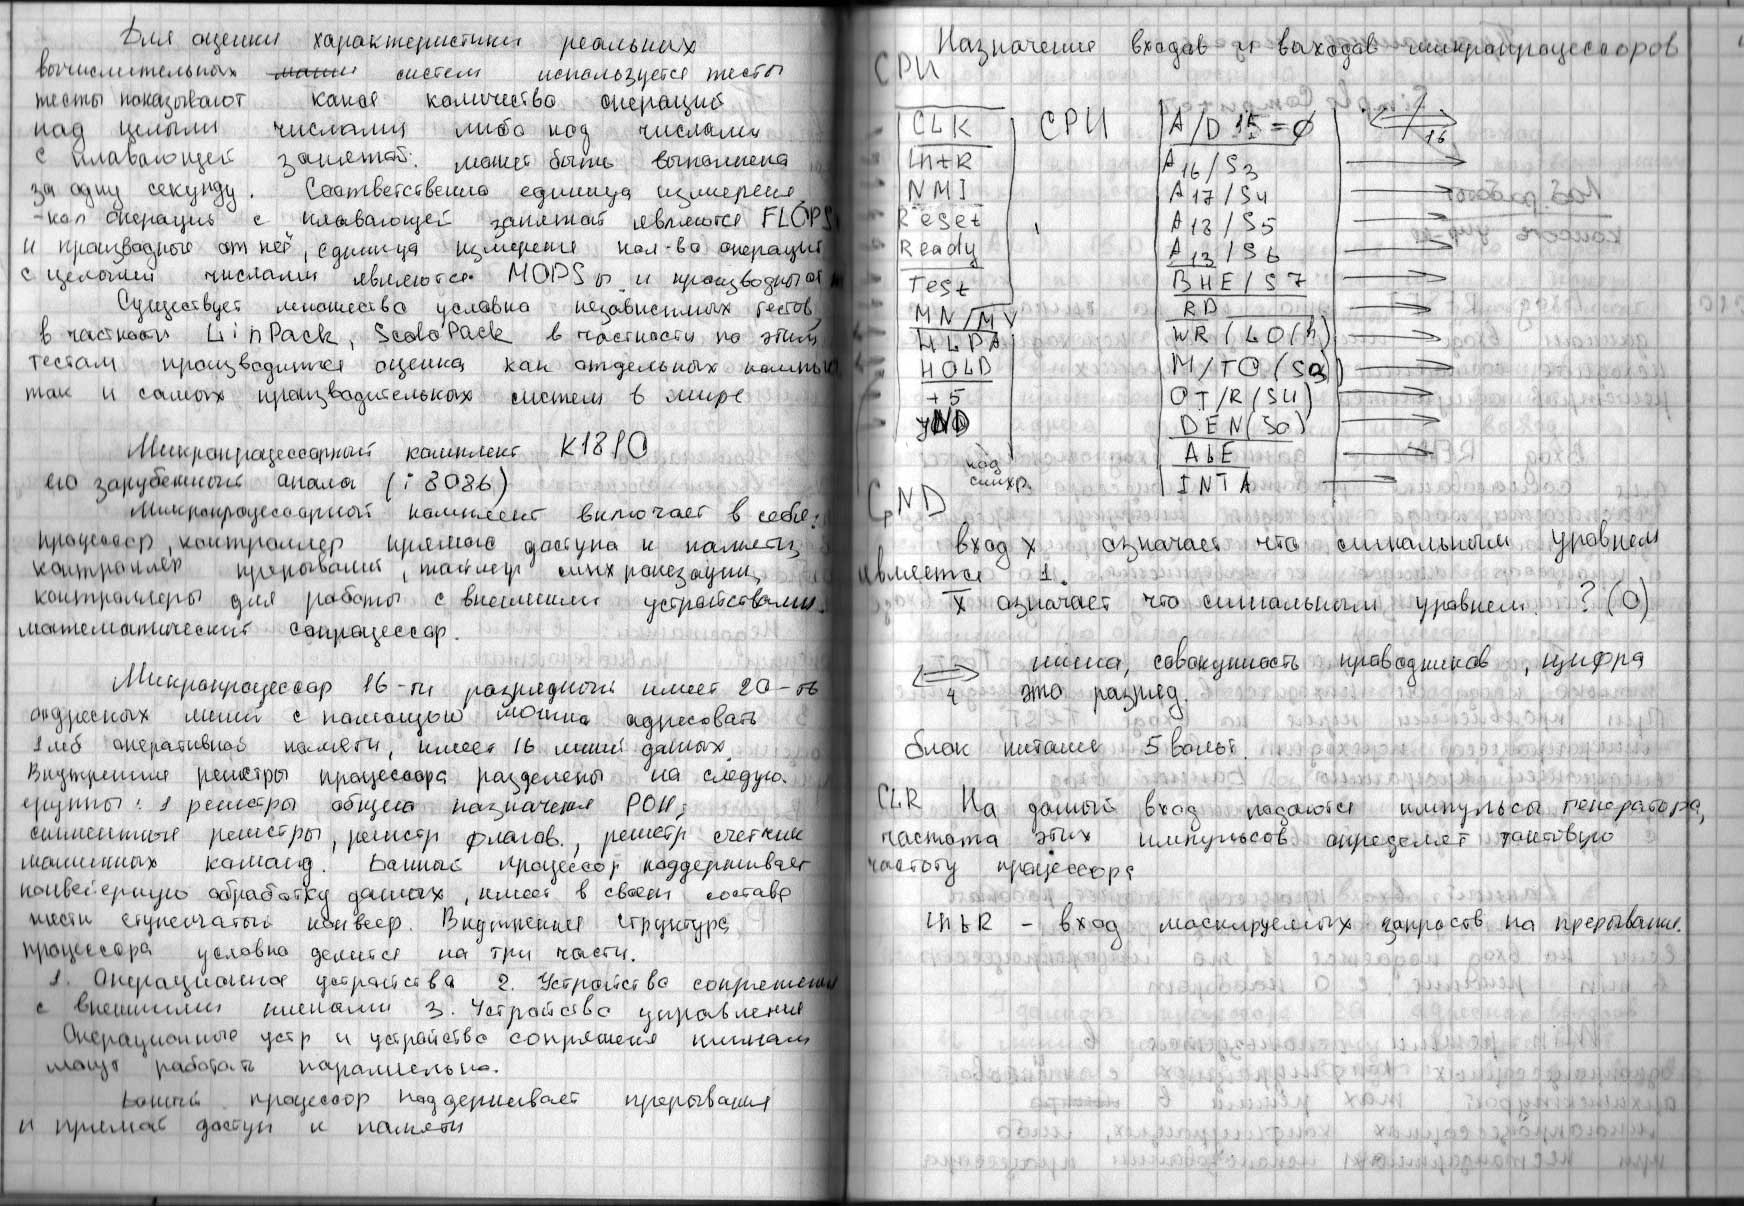 Для оценки характеристики реальных
вычислительных систем используется тесты
тесты показывают какое количество операций
над целыми числами либо над числами
с плавающей запятой. может быть выполнена
за одну секунду. Соответственно единица измерения
-кол операций с плавающей запятой являются FLOPS
и производные от неё, единица измерения кол-во операций
с целыми числами являются MOPSы и производный от
Существует множество условно независимых тестов
в частности LinPack, ScalaPack в частности по этим
тестам производится оценка как отдельных компью
так и самых производительных систем в мире
Микропроцессорный комплект К1810
его зарубежный аналог (i8086)
Микропроцессорный комплект включает в себя:
процессор, контроллер прямого доступа к памяти
контроллер прерываний, таймер синхронизации,
контроллеры для работы с внешними устройствами.
математический сопроцессор.
Микропроцессор 16-ти разрядный имеет 20-ть
адресных линий с помощью можно адресовать
1 мб оперативной памяти, имеет 16 линий данных
Внутренние регистры процессора разделены на следую.
группы: 1 регистры общего назначения РОН;
сигментные регистры, регистр флагов, регистр счетчик
машинных команд. Данный процессор поддерживает
конвейерную обработку данных, имеет в своем составе
шести ступенчатый конвеер. Внутренняя структура
процессора условно делится на три части.
1. Операционное устройства 2. Устройство сопряжения
с внешними шинами 3. Устройство управления
Операционные устр и устройство сопряжения шинами
могут работать параллельно.
Данный процессор поддерживает прерывания
и прямой доступ к памяти
Назначение входов и выходов микропроцессоров
CPU
CLK CPU A/D 15=0 16
IntR A16/S3
NMI A17/S4
Reset A18/S5
Ready A19/S6
Test BHE/S7
MN/MX RD
HLDA WR/LO/h)
HOLD M/TO (S2)
+5 OT/R/(S4)
DEN(S0)
ALE
синхр. INTA
GND
вход x означает что сигнальным уровнем
является 1.
x̅ означает что сигнальным уровнем ? (0)
шина, совокупность проводников, цифра
4 это разряд.
блок питания 5 вольт.
CLR На данный вход подаются импульсы генератора,
частота этих импульсов определяет тактовую
частоту процессора
IntR - вход маскируемых запросов на прерывание.